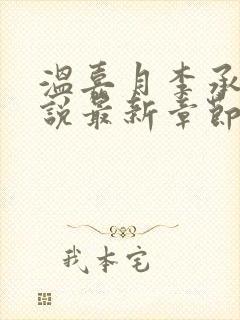 温喜月李承
說最新章節
我本宅